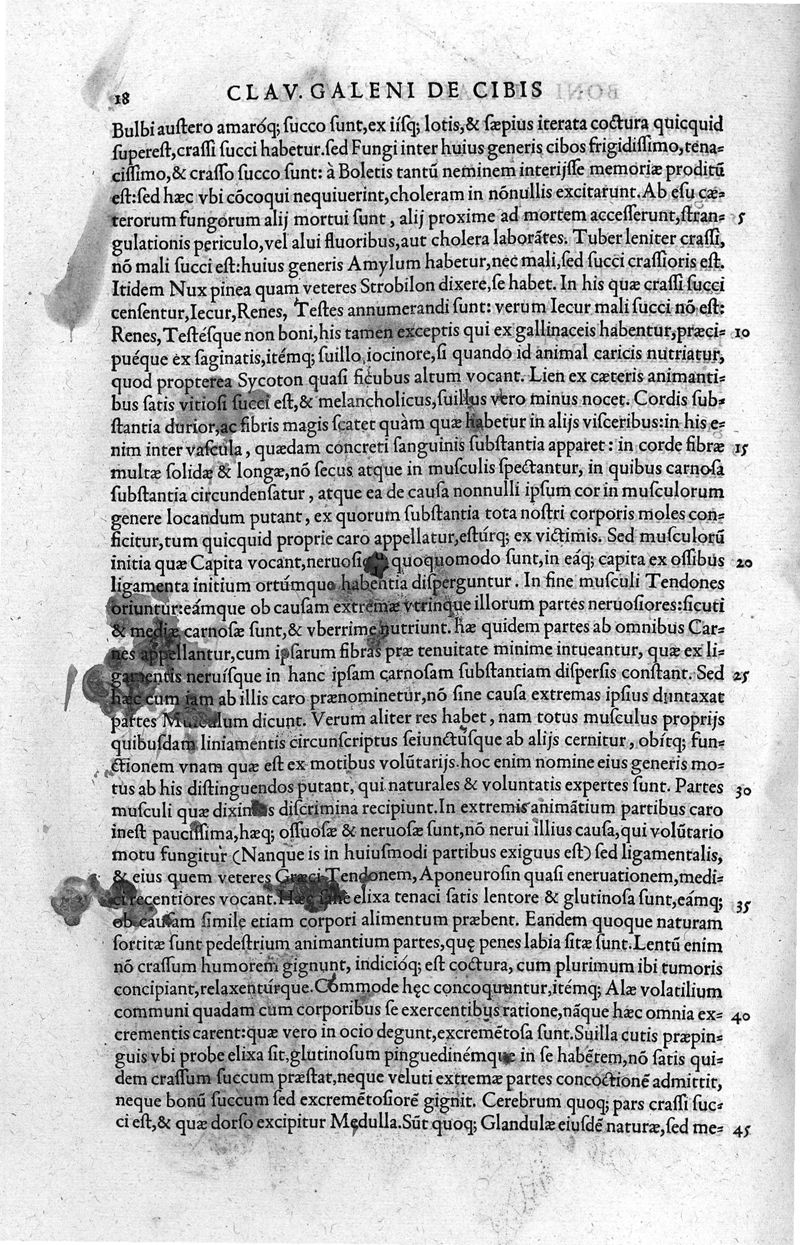 18 CLAV. GALENI DE CIBIS
Bulbi auſtero amaróq; ſucco ſunt, ex iíſq; lotis, & ſæpius iterata coctura quicquid
ſupereſt, craſſi ſucci habetur. ſed Fungi inter huius generis cibos frigidiſſimo, tena=
ciſſimo, & craſſo ſucco ſunt: à Boletis tantũ neminem interijſſe memoriæ proditũ
eſt: ſed hæc vbi cõcoqui nequiuerint, choleram in nõnullis excitarunt. Ab eſu cæ=
terorum fungorum alij mortui ſunt, alij proxime ad mortem acceſſerunt, ſtran= 5
gulationis periculo, vel alui fluoribus, aut cholera laborãtes. Tuber leniter craſſi,
nõ mali ſucci eſt: huius generis Amylum habetur, nec mali, ſed ſucci craſſioris eſt.
Itidem Nux pinea quam veteres Strobilon dixere, ſe habet. In his quæ craſſi ſucci
cenſentur, Iecur, Renes, Teſtes annumerandi ſunt: verum Iecur mali ſucci nõ eſt:
Renes, Teſtéſque non boni, his tamen exceptis qui ex gallinaceis habentur, præci= 10
puéque ex ſaginatis, itémq; ſuillo iocinore, ſi quando id animal caricis nutriatur,
quod propterea Sycoton quaſi ficubus altum vocant. Lien ex cæteris animanti=
bus ſatis vitioſi ſucci eſt, & melancholicus, ſuillus vero minus nocet. Cordis ſub=
ſtantia durior, ac fibris magis ſcatet quàm quæ habetur in alijs viſceribus: in his e=
nim inter vaſcula, quædam concreti ſanguinis ſubſtantia apparet: in corde fibræ 15
multæ ſolidæ & longæ, nõ ſecus atque in muſculis ſpectantur, in quibus carnoſa
ſubſtantia circundenſatur, atque ea de cauſa nonnulli ipſum cor in muſculorum
genere locandum putant, ex quorum ſubſtantia tota noſtri corporis moles con=
ficitur, tum quicquid proprie caro appellatur, eſtúrq; ex victimis. Sed muſculorũ
initia quæ Capita vocant, neruoſi quoquomodo ſunt, in eáq; capita ex oſſibus 20
ligamenta initium ortúmque habentia diſperguntur. In fine muſculi Tendones
oriuntur: eámque ob cauſam extremæ vtrinque illorum partes neruoſiores: ſicuti
& mediæ carnoſæ ſunt, & vberrime nutriunt. hæ quidem partes ab omnibus Car=
nes appellantur, cum ipſarum fibras præ tenuitate minime intueantur, quæ ex li=
gamentis neruíſque in hanc ipſam carnoſam ſubſtantiam diſperſis conſtant. Sed 25
hæc cum iam ab illis caro prænominetur, nõ ſine cauſa extremas ipſius duntaxat
partes Muſculum dicunt. Verum aliter res habet, nam totus muſculus proprijs
quibuſdam liniamentis circunſcriptus ſeiunctúſque ab alijs cernitur, obítq; fun=
ctionem vnam quæ eſt ex motibus volũtarijs. hoc enim nomine eius generis mo=
tus ab his diſtinguendos putant, qui naturales & voluntatis expertes ſunt. Partes 30
muſculi quæ diximus diſcrimina recipiunt. In extremis animãtium partibus caro
ineſt pauciſſima, hæq; oſſuoſæ & neruoſæ ſunt, nõ nerui illius cauſa, qui volũtario
motu fungitur (Nanque is in huiuſmodi partibus exiguus eſt) ſed ligamentalis,
& eius quem veteres Græci Tendonem, Aponeuroſin quaſi eneruationem, medi=
ci recentiores vocant. elixa tenaci ſatis lentore & glutinoſa ſunt, eámq; 35
ob cauſam ſimile etiam corpori alimentum præbent. Eandem quoque naturam
ſortitæ ſunt pedeſtrium animantium partes, quę penes labia ſitæ ſunt. Lentũ enim
nõ craſſum humorem gignunt, indicióq; eſt coctura, cum plurimum ibi tumoris
concipiant, relaxentúrque. Commode hęc concoquuntur, itémq; Alæ volatilium
communi quadam cum corporibus ſe exercentibus ratione, nãque hæc omnia ex= 40
crementis carent: quæ vero in ocio degunt, excremẽtoſa ſunt. Suilla cutis præpin=
guis vbi probe elixa ſit, glutinoſum pinguedinémque in ſe habẽtem, nõ ſatis qui=
dem craſſum ſuccum præſtat, neque veluti extremæ partes concoctionẽ admittit,
neque bonũ ſuccum ſed excremẽtoſiorẽ gignit. Cerebrum quoq; pars craſſi ſuc=
ci eſt, & quæ dorſo excipitur Medulla. Sũt quoq; Glandulæ eiuſdẽ naturæ, ſed me= 45